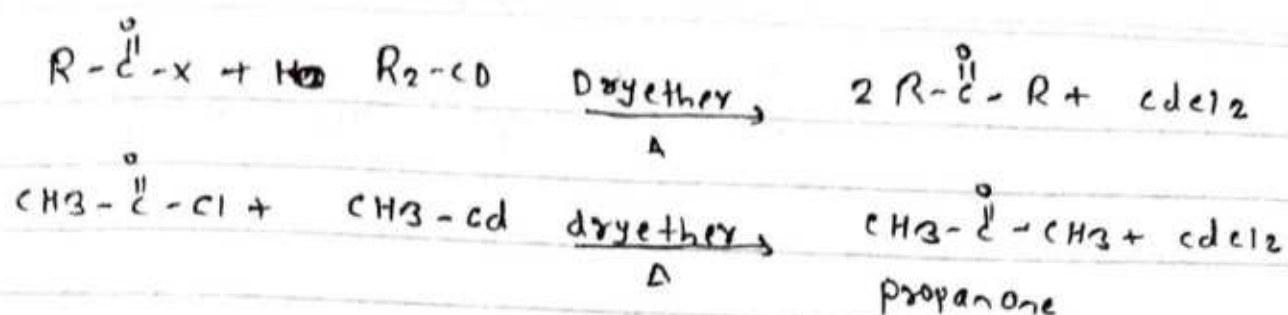 O O
R - C - X + R2 - CD Dryether 2 R - C - R + cdcl2
Δ
O O
CH3 - C - Cl + CH3 - Cd dryether CH3 - C - CH3 + cdcl2
Δ
propanone